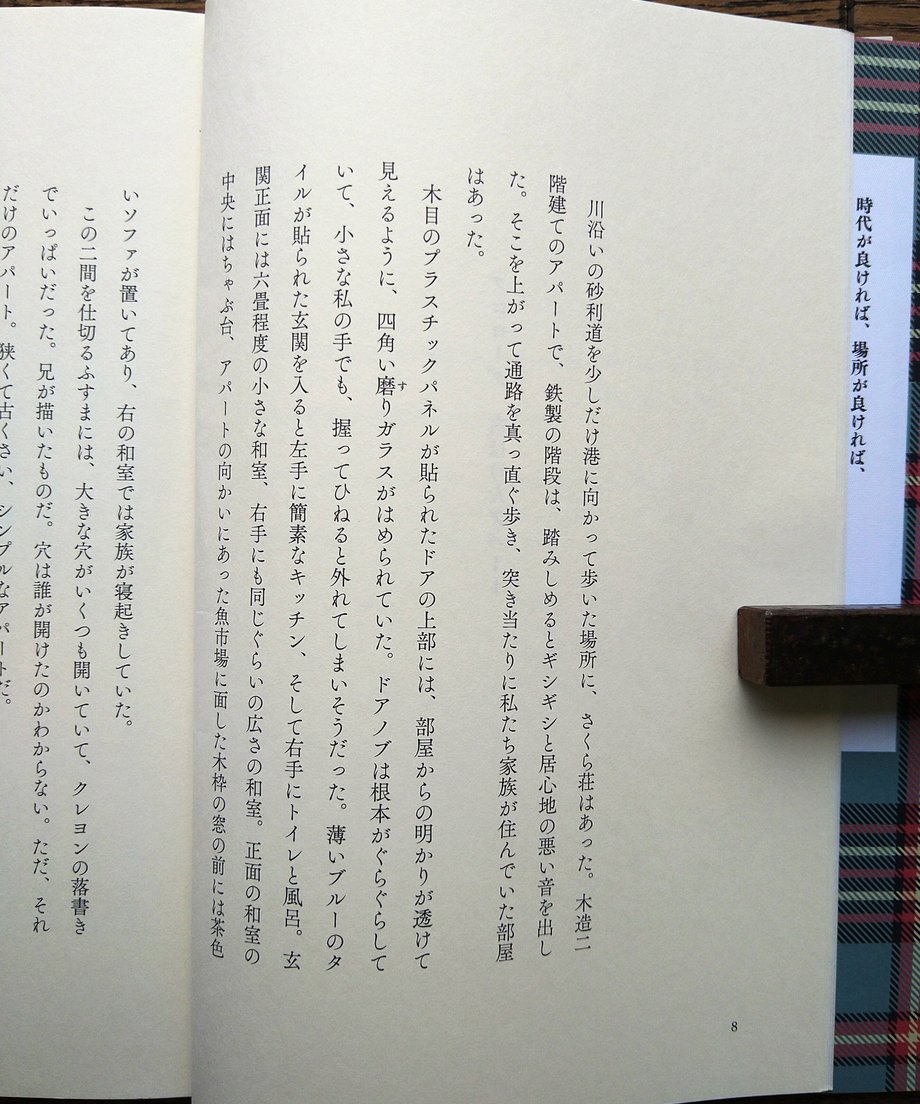 時代が良ければ、場所が良ければ、
川沿いの砂利道を少しだけ港に向かって歩いた場所に、さくら荘はあった。木造二
階建てのアパートで、鉄製の階段は、踏みしめるとギシギシと居心地の悪い音を出し
た。そこを上がって通路を真っ直ぐ歩き、突き当たりに私たち家族が住んでいた部屋
はあった。
木目のプラスチックパネルが貼られたドアの上部には、部屋からの明かりが透けて
見えるように、四角い磨りガラスがはめられていた。ドアノブは根本がぐらぐらして
す
いて、小さな私の手でも、握ってひねると外れてしまいそうだった。薄いブルーのタ
イルが貼られた玄関を入ると左手に簡素なキッチン、そして右手にトイレと風呂。玄
関正面には六畳程度の小さな和室、右手にも同じぐらいの広さの和室。正面の和室の
中央にはちゃぶ台、アパートの向かいにあった魚市場に面した木枠の窓の前には茶色
8
いソファが置いてあり、右の和室では家族が寝起きしていた。
この二間を仕切るふすまには、大きな穴がいくつも開いていて、クレヨンの落書き
でいっぱいだった。兄が描いたものだ。穴は誰が開けたのかわからない。ただ、それ
だけのアパート。狭くて古くさい、シンプルなアパートだ。